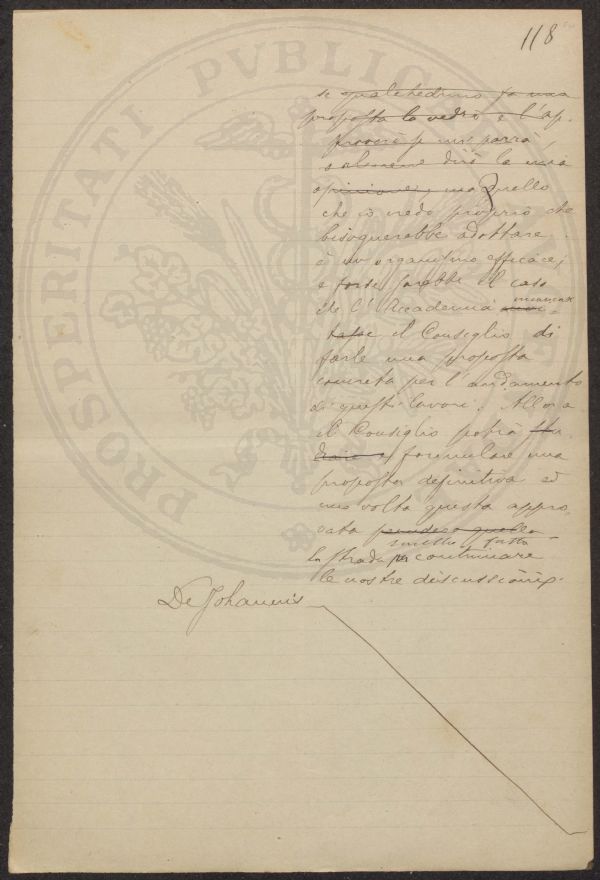 118
PROSPERITATI PVBLICAE
se qualcheduno fa una
proposta la vedrò e l'ap-
proverò se mi parrà,
solamente dirò la mia
opinione, ma quello
che io credo proprio che
bisognerebbe adottare
è un organismo efficace,
e forse sarebbe il caso
che l'Accademia incaricas=
tasse il Consiglio di
farle una proposta
concreta per l'andamento
di questi lavori. Allora
il Consiglio potrà stu
diare e formulare una
proposta definitiva ed
una volta questa appro-
vata prendere quella
fatta
la strada per continuare
le nostre discussioni.
De Johannis